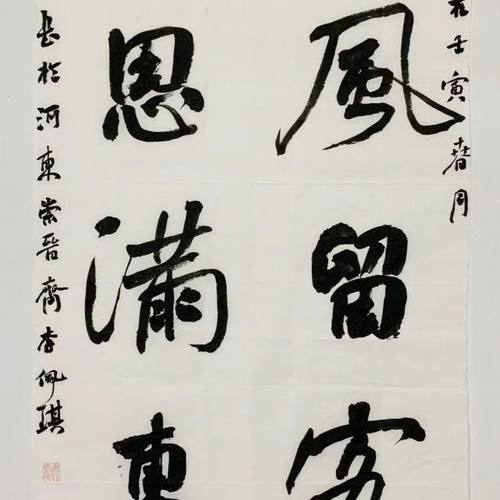 在壬寅春月
風留客
恩滿東
書於河東崇晉齋李佩琪